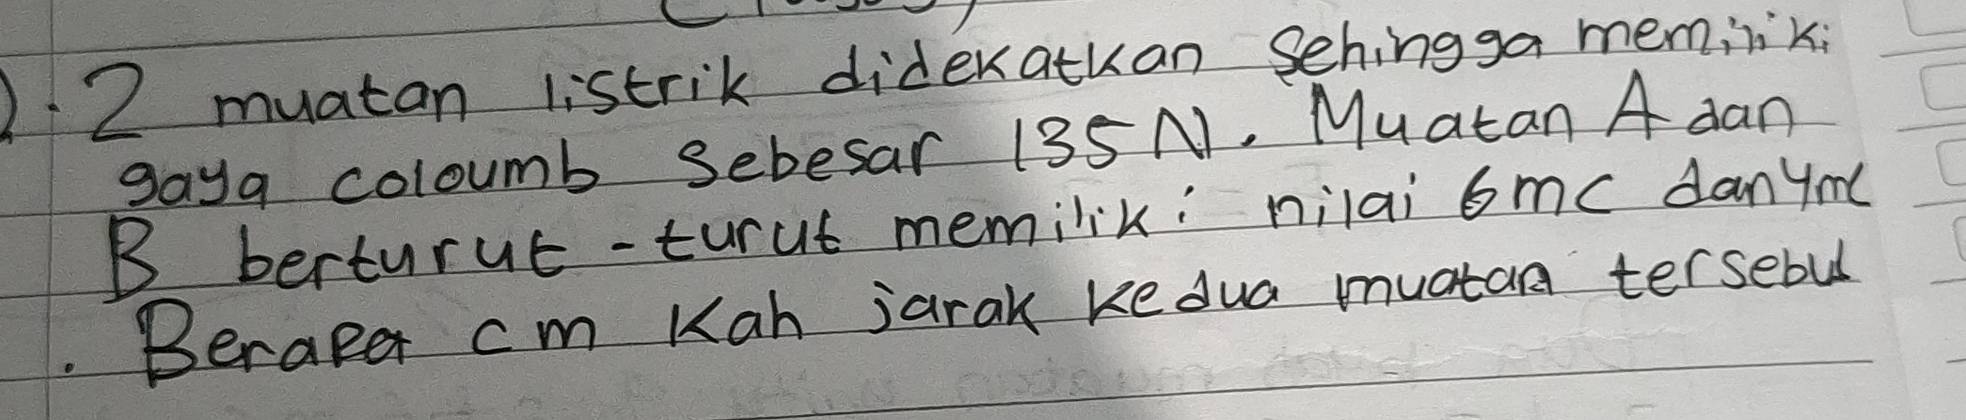 2 muatan listrik didekatkan sehingga memiliki
gaya coloumb sebesar 135 N. Muatan A dan
B berturut-turut memiliki nilai 6 mc dan 4 mc
. Berapa cm kah jarak kedua muatan tersebut